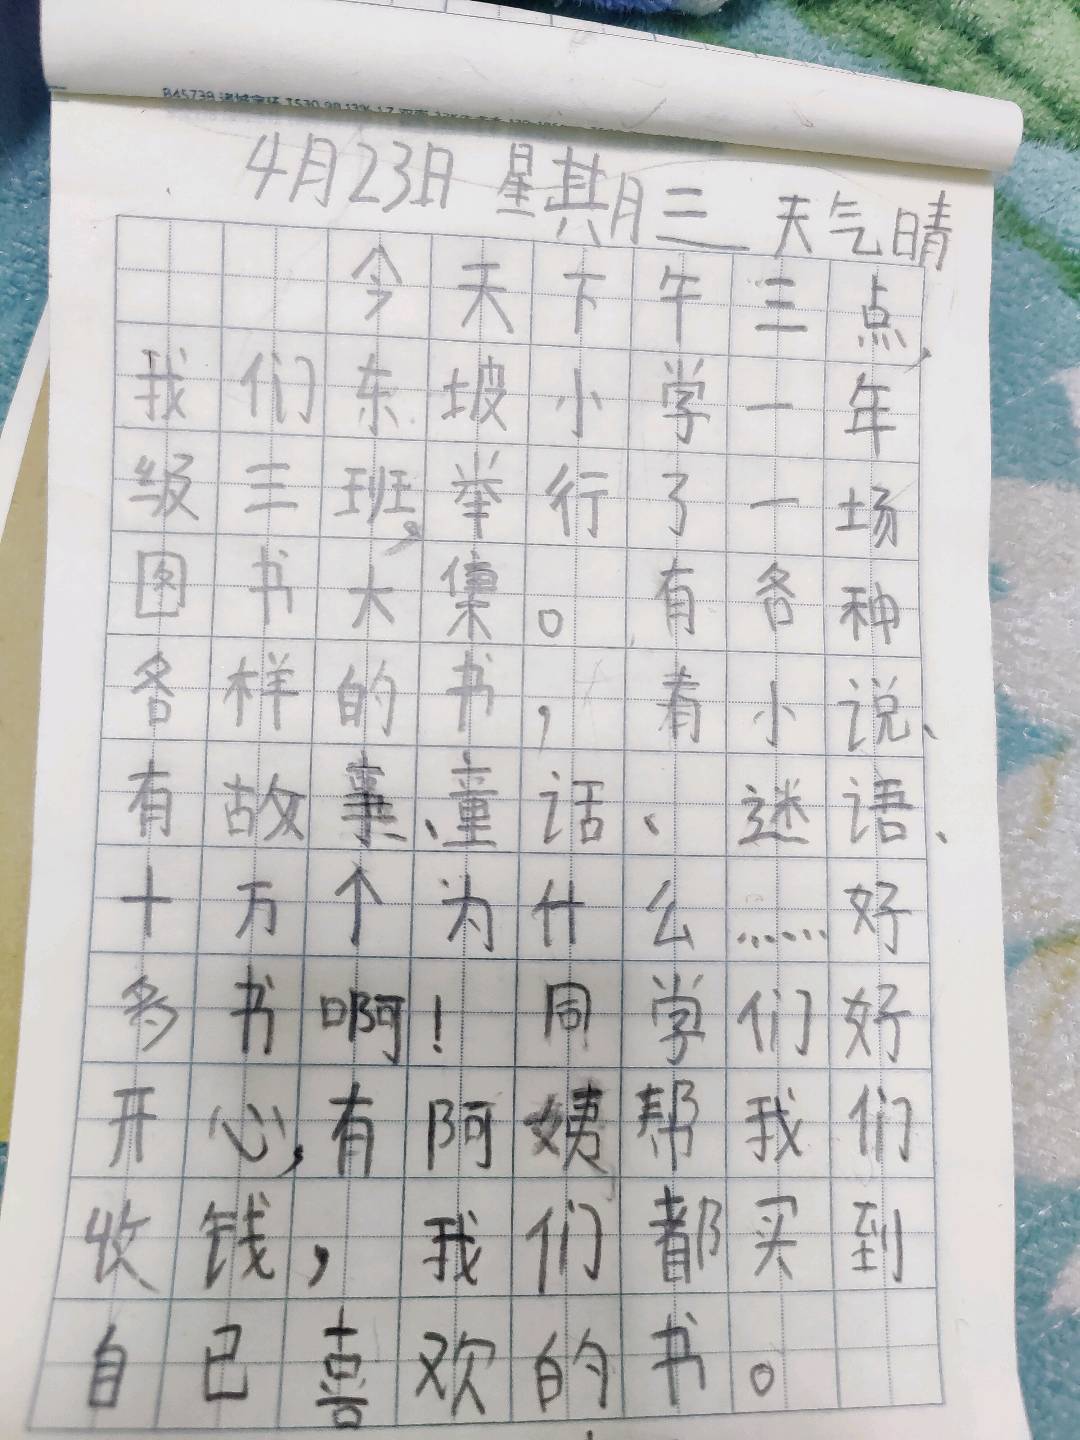 4月23日 星期三 天气晴
今天下午三点,
我们东坡小学一年
级三班,举行了一场
图书大集。有各种
各样的书,有小说、
有故事、童话、谜语、
十万个为什么……好
多书啊!同学们好
开心,有阿姨帮我们
收钱,我们都买到
自已喜欢的书。